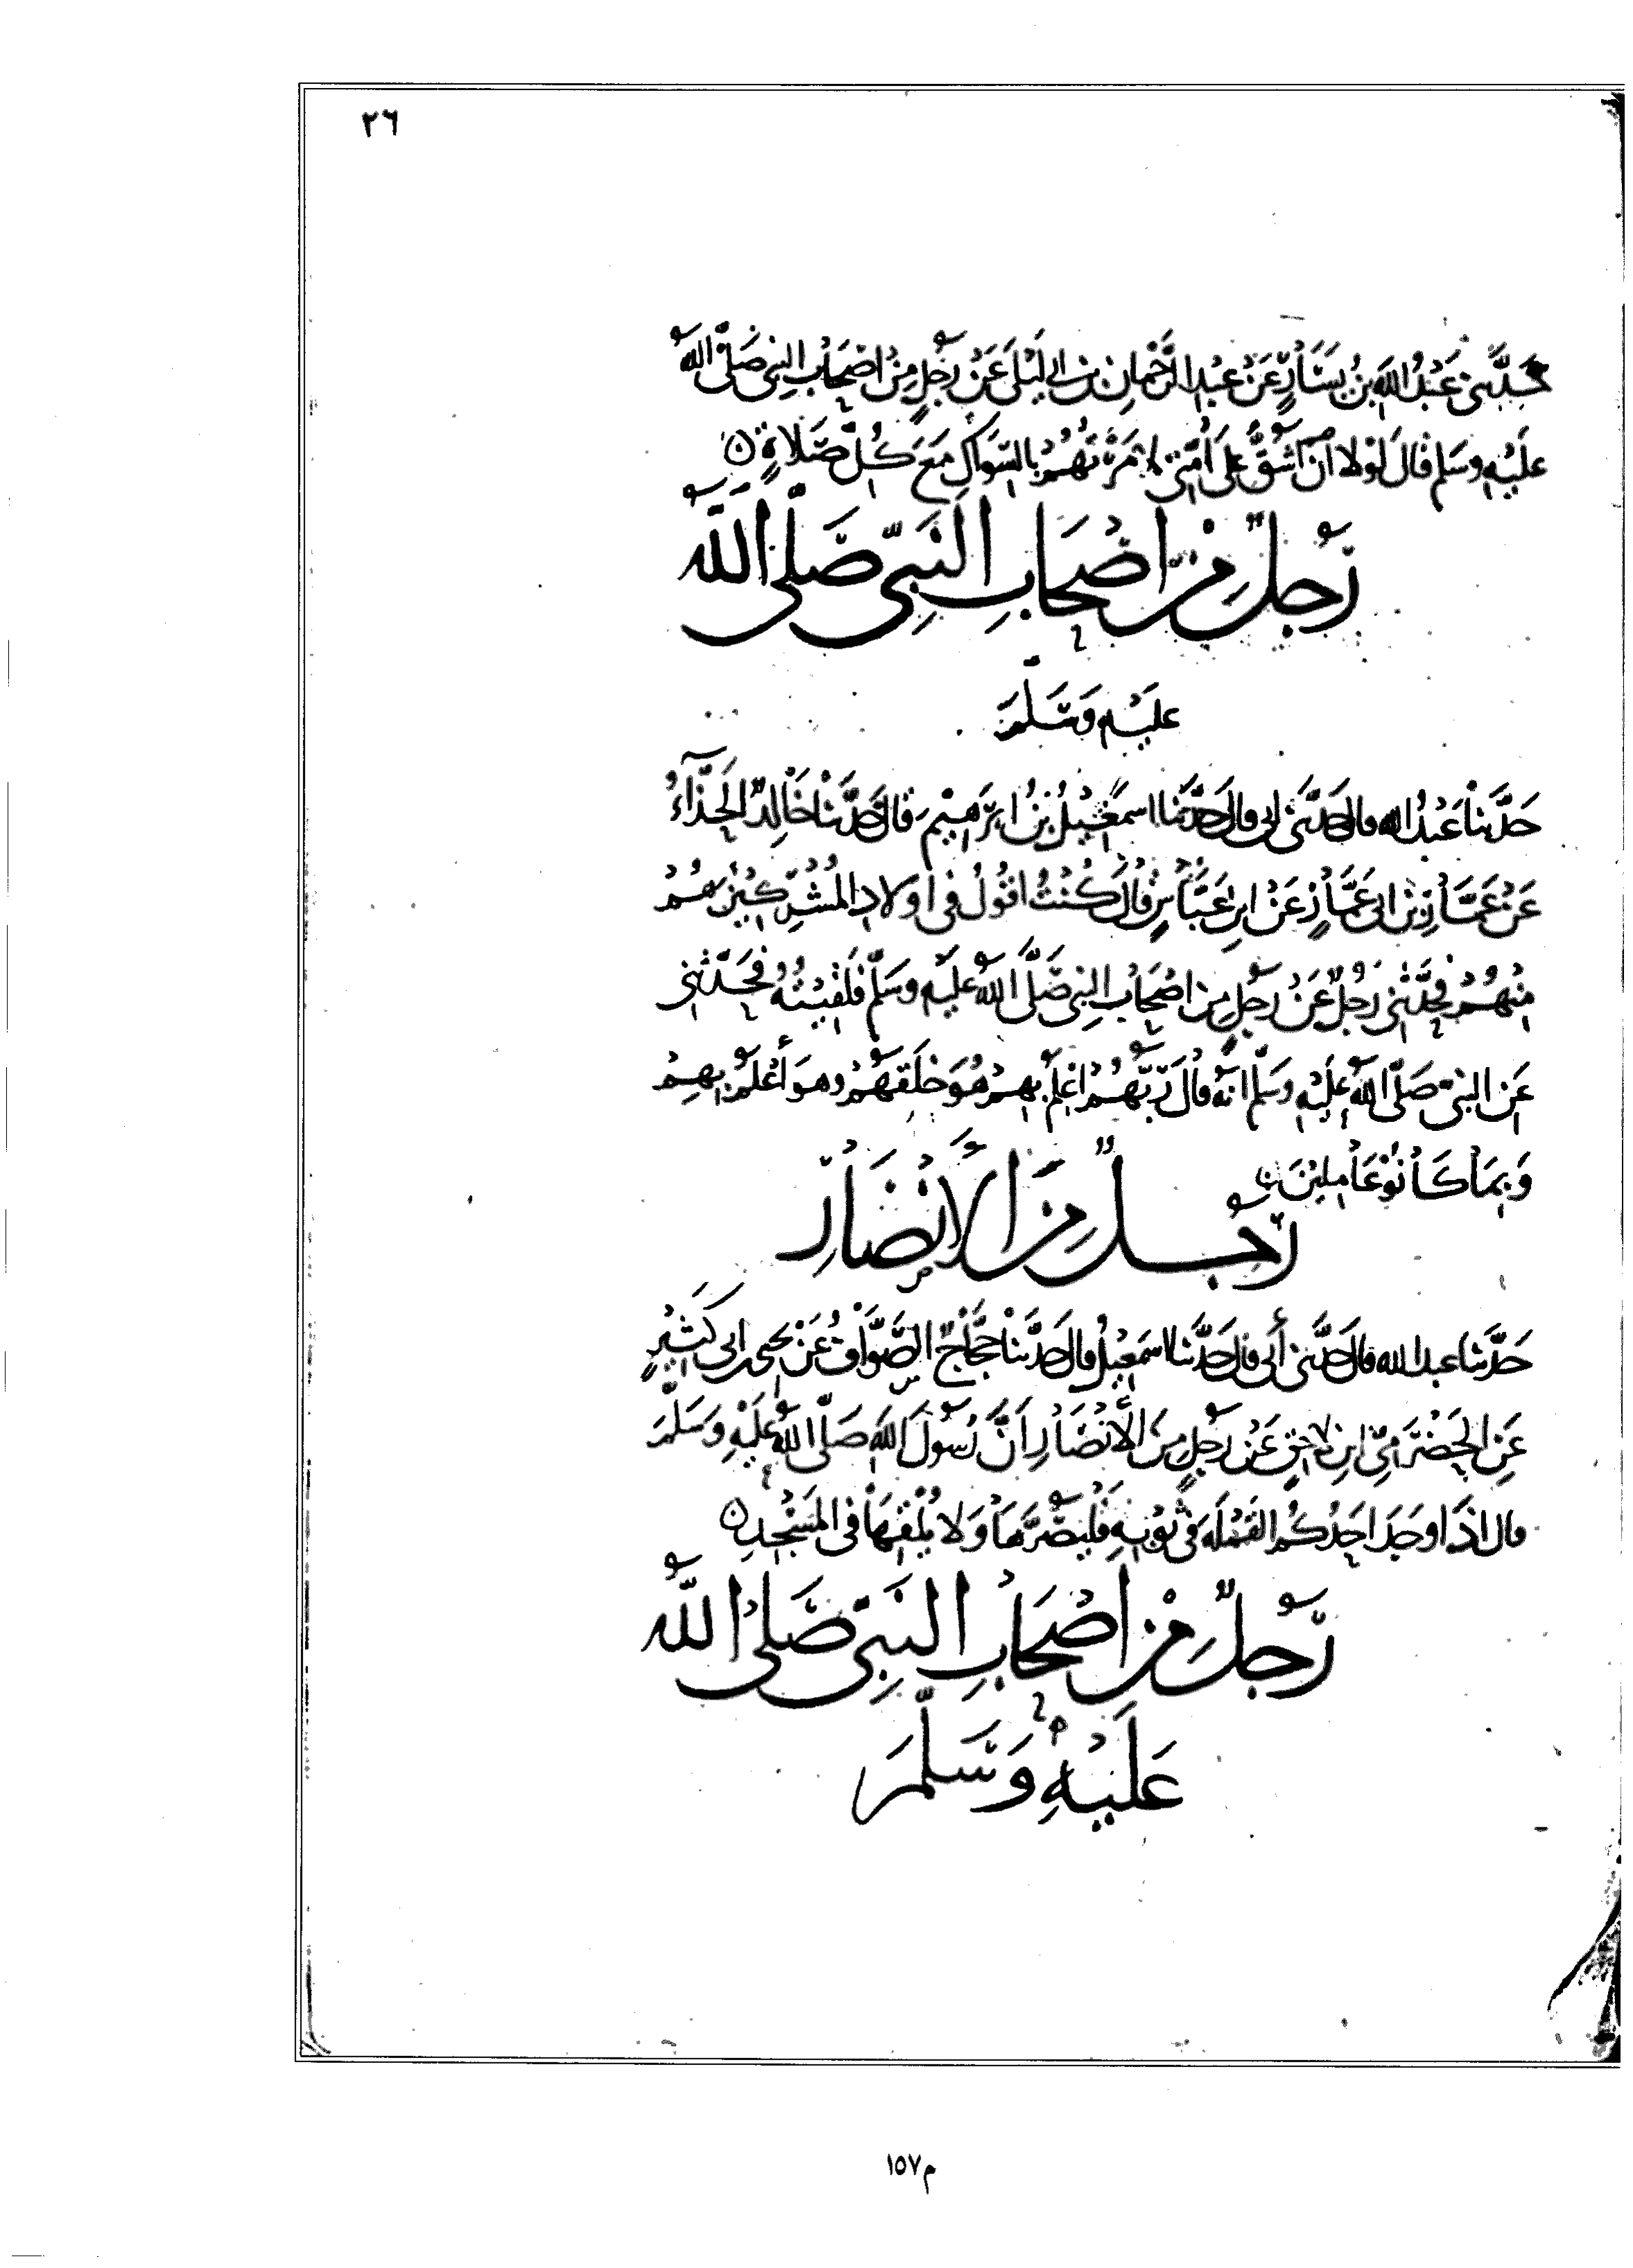 ٢٦
حَدَّثني عَبْدُ اللهِ بنُ يَسَارٍ عَنْ عبدِ الرَّحْمانِ بن ابي لَيْلَى عَنْ رَجُلٍ مِنْ اصْحَابِ النبِي صَلَّى اللهُ
عَلَيْهِ وسَلم قالَ لَوْلا أَنْ أَشُقَّ عَلى أُمَّتي لأمَرْتُهُمْ بالسِّوَاكِ مَعَ كُلِّ صَلَاةٍ
رَجُلٌ مِنْ اصْحَابِ النَّبِيِّ صَلَّى اللهُ
عَلَيْهِ وَسَلَّمَ
حَدَّثنَا عَبْدُ الله قال حَدَّثَنى ابى قال حَدَّثَنَا اسمَعِيْلُ بْنُ ابرَهِيْمَ قالَ حَدَّثَنَا خَالِدٌ الحَذَّآءُ
عَنْ عَمَّارِ بْنِ ابى عَمَّارٍ عَنْ ابنِ عَبَّاسٍ قالَ كُنْتُ اقُولُ فى اوْلادِ المُشْرِكِيْنَ هُمْ
مِنْهُمْ فحدَّثنى رَجُلٌ عَنْ رَجُلٍ مِنْ اصْحَابِ النبِي صَلَّى اللهُ عَلَيْهِ وسَلَّم فلَقِيْتُهُ فحَدَّثَنى
عَنِ النبيّ صَلَّى اللهُ عَلَيْهِ وسَلَّم انهُ قالَ رَبُّهُمْ اعْلَمُ بِهِمْ هُوَ خلَقَهُمْ وهوَ أَعْلَمُ بِهِمْ
وَبِمَا كَانُوْ عَامِلِيْنَ
رَجُلٌ مِنَ الأَنْصَارِ
حَدَّثنا عبد الله قالَ حَدَّثَنى أَبى قالَ حَدَّثَنا اسمَعِيْلُ قالَ حَدَّثَنَا حَجَّاجٌ الصَّوَّافُ عَنْ يحيى ابن ابى كَثِيْرٍ
عَنِ الحَضْرَمِيّ ابن لاحِقٍ عَنْ رَجُلٍ مِنَ الأَنْصَارِ أَنَّ رَسُوْلَ اللهِ صَلَّى اللهُ عَلَيْهِ وَسَلَّمَ
قال اذَا وجَدَ احَدُكُم القَمْلَة فى ثوْبِهِ فَلْيَصُرَّهَا وَلا يُلْقِهَا فى المَسْجِدِ
رَجُلٌ مِنْ اصْحَابِ النَّبِيِّ صَلَّى اللهُ
عَلَيْهِ وَسَلَّمَ
م١٥٧